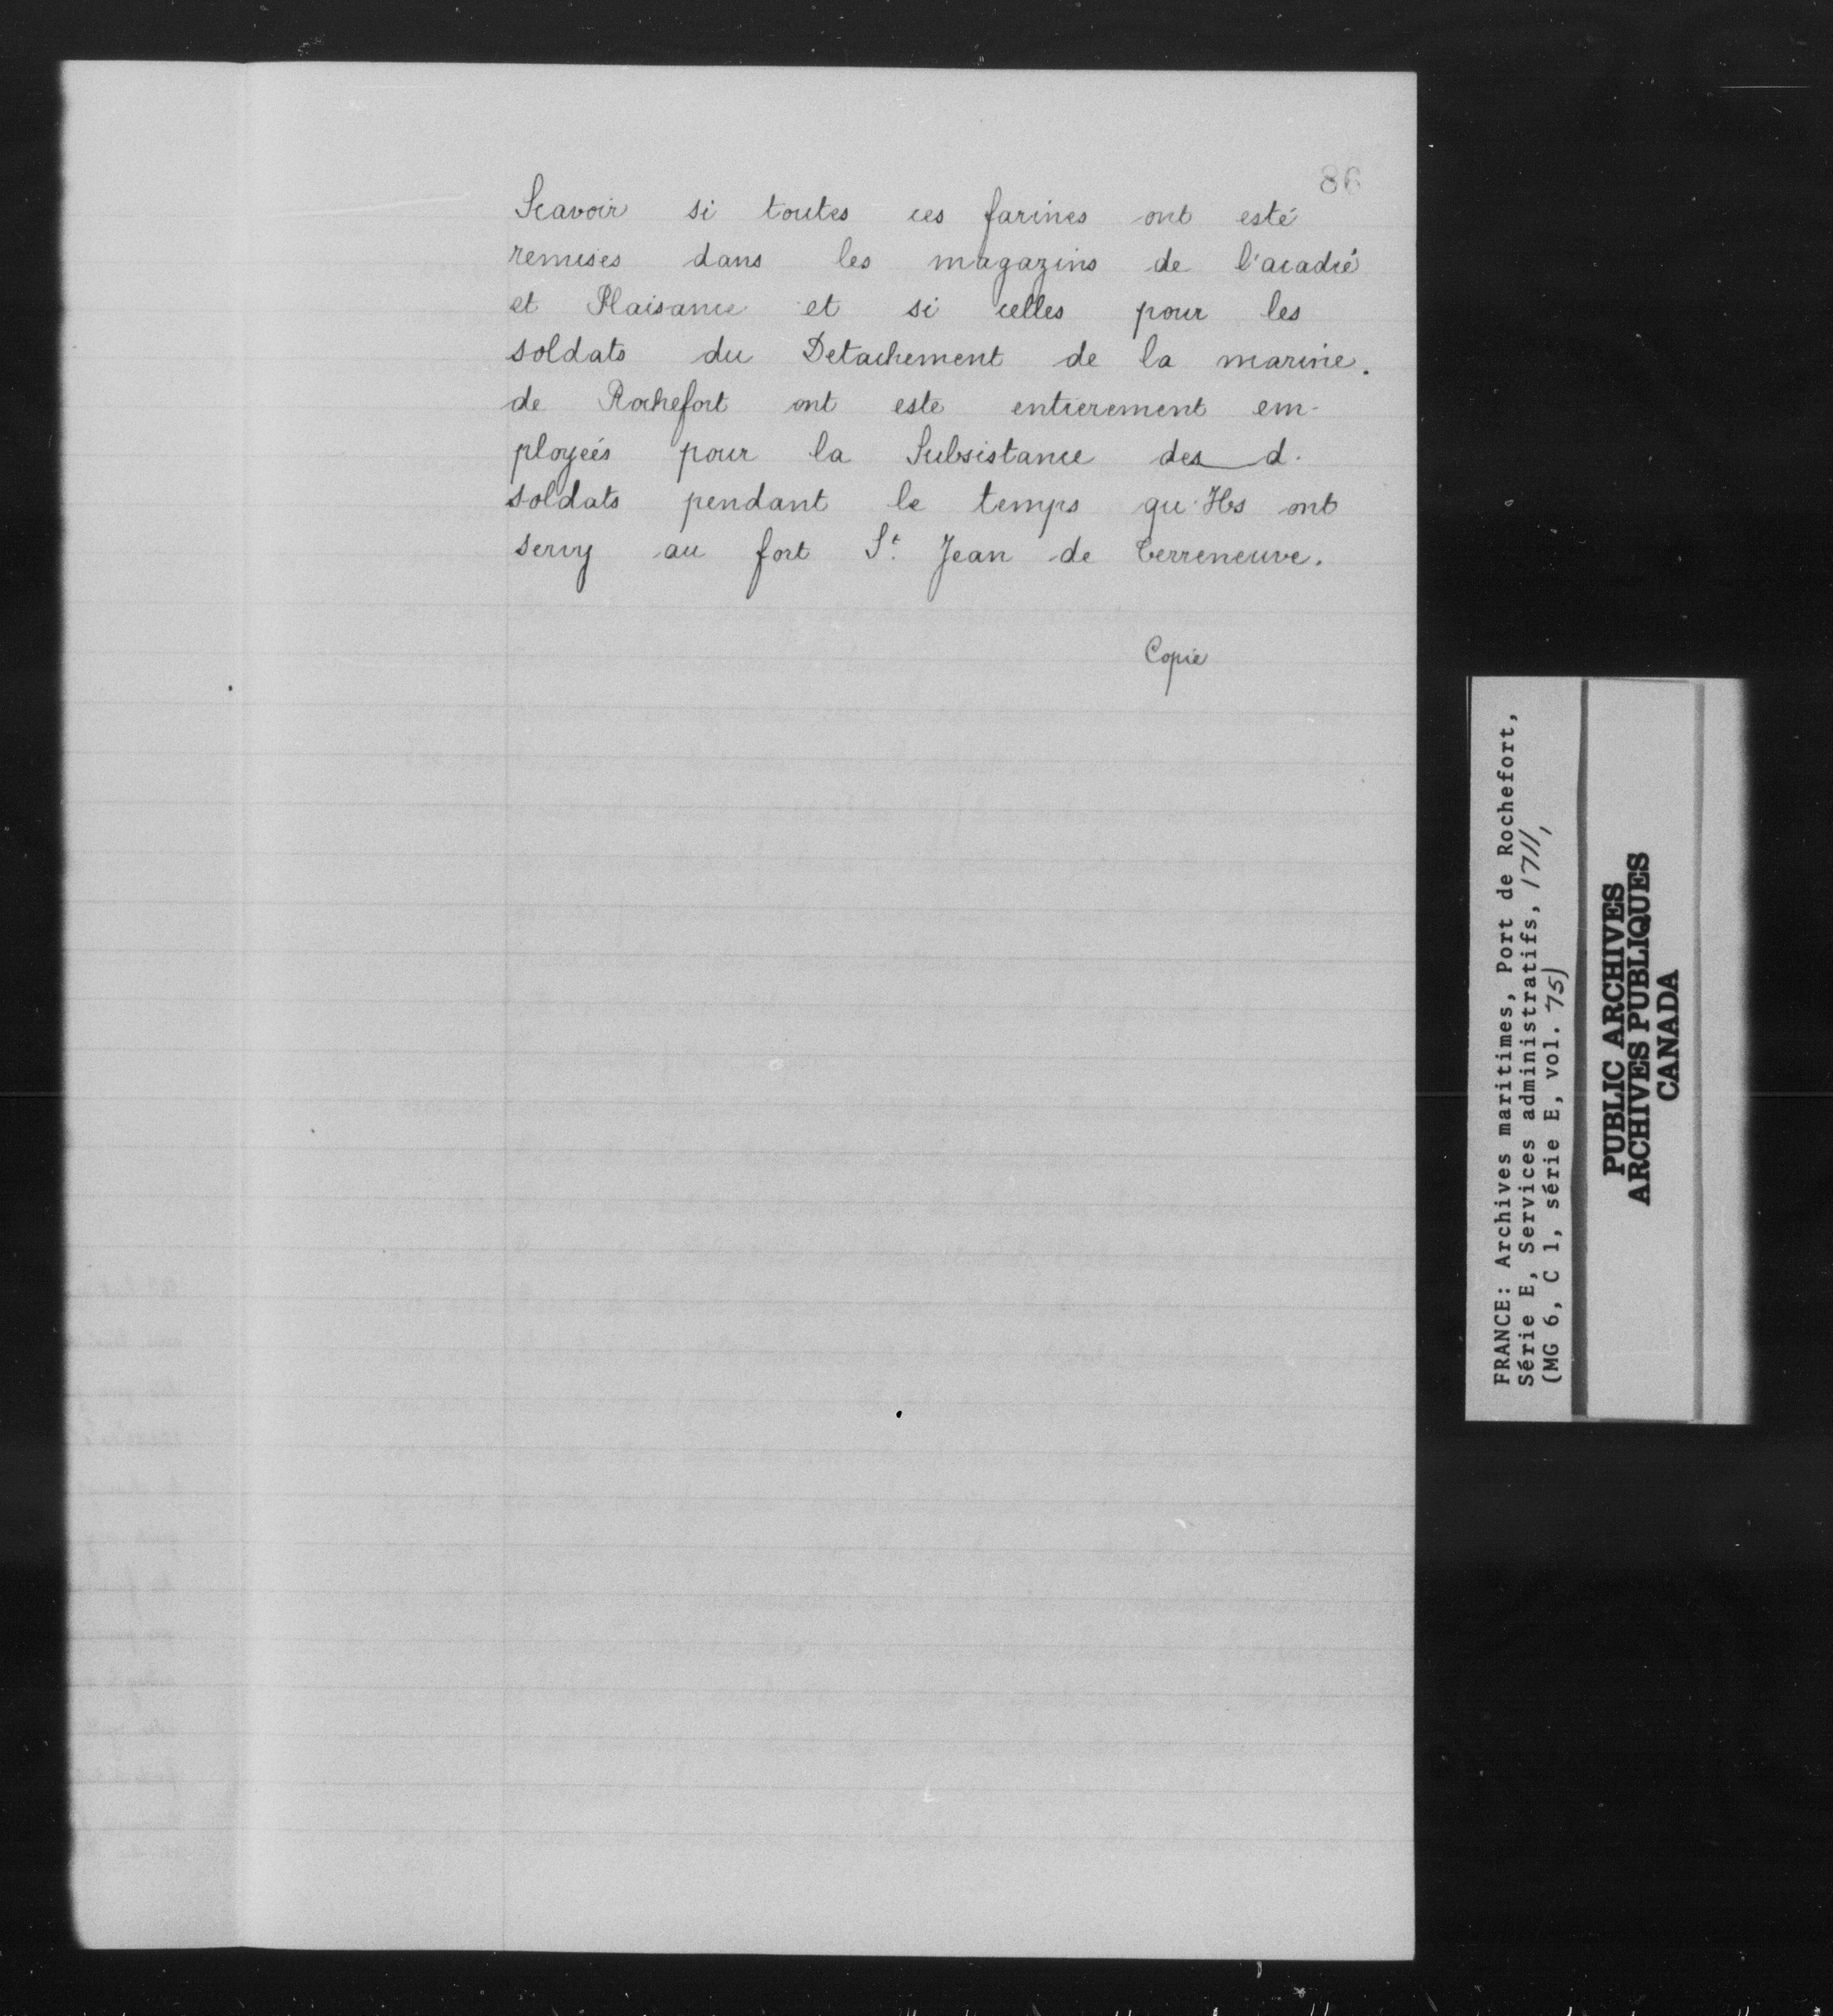 86
Scavoir si toutes ces farines ont esté
remises dans les magazins de l'acadie
et Plaisance et si celles pour les
soldats du Detachement de la marine.
de Rochefort ont este entierement em-
ployeés pour la Subsistance des d.
soldats pendant le temps qu'Ils ont
servy au fort St. Jean de Terreneuve.
Copie
FRANCE: Archives maritimes, Port de Rochefort,
Série E, Services administratifs, 1711,
(MG 6, C 1, série E, vol. 75)
PUBLIC ARCHIVES
ARCHIVES PUBLIQUES
CANADA